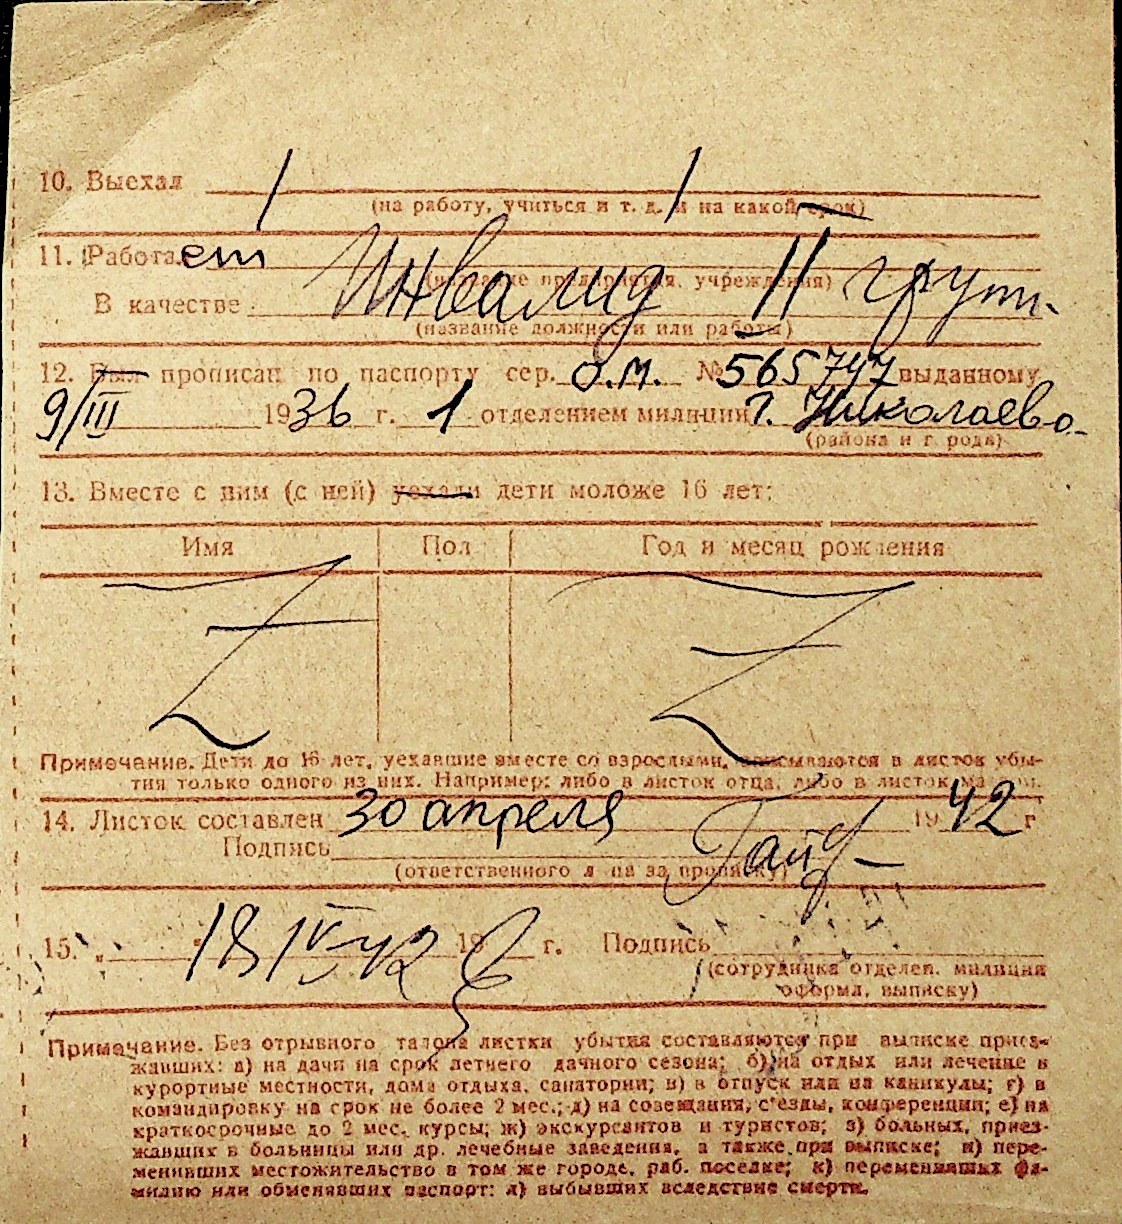 10. Выехал
(на работу, учиться и т. д. и на какой срок)
11. Работает Инвалид II групп.
(название предприятия, учреждения)
В качестве
(название должности или работы)
12. Был прописан по паспорту сер. О.М. № 565747 выданному
9/III 1936 г. 1 отделением милиции г. Николаево-
(района и города)
13. Вместе с ним (с ней) уехали дети моложе 16 лет:
Имя Пол Год и месяц рождения
Z Z
Примечание. Дети до 16 лет, уехавшие вместе со взрослыми, вписываются в листок убы-
тия только одного из них. Например: либо в листок отца, либо в листок матери.
14. Листок составлен 30 апреля 1942 г
Подпись
(ответственного лица за прописку)
15. „ " 18/IV-42 19 г. Подпись
(сотрудника отделен. милиции
оформл. выписку)
Примечание. Без отрывного талона листки убытия составляются при выписке приез-
жавших: а) на дачи на срок летнего дачного сезона; б) на отдых или лечение в
курортные местности, дома отдыха, санатории; в) в отпуск или на каникулы; г) в
командировку на срок не более 2 мес.; д) на совещания, съезды, конференции; е) на
краткосрочные до 2 мес. курсы; ж) экскурсантов и туристов; з) больных, приез-
жавших в больницы или др. лечебные заведения, а также при выписке; и) пере-
менивших местожительство в том же городе, раб. поселке; к) переменивших фа-
милию или обменявших паспорт; л) выбывших вследствие смерти.